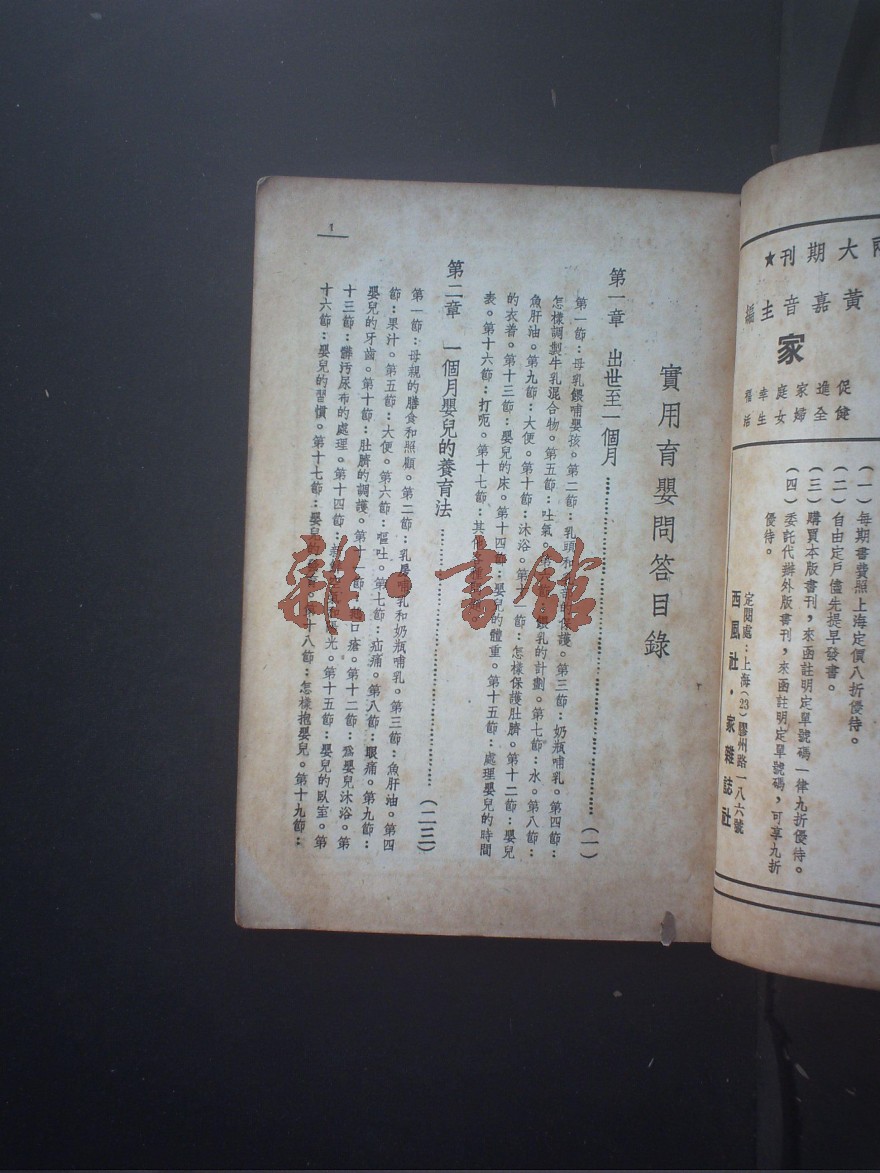 兩大期刊★
黃嘉音主編
家
促進家庭幸福
健全婦女生活
(一)每期書費照上海定價八折優待。
(二)自由定戶儘先提早發書。
(三)購買本版書刊，來函註明定單號碼一律九折優待。
(四)委託代辦外版書刊，來函註明定單號碼，可享九折
優待。
定閱處：上海(23)膠州路一八六號
西風社・家雜誌社
實用育嬰問答目錄
第一章 出世至一個月……(一)
第一節：母乳餵哺嬰孩。第二節：乳頭和的保護。第三節：奶瓶哺乳。第四節：
怎樣調製牛乳混合物。第五節：吐氣。餵乳的計劃。第七節：水。第八節：
魚肝油。第九節：大便。第十節：沐浴。第十一節：怎樣保護肚臍。第十二節：嬰兒
的衣着。第十三節：嬰兒的床。第十四節：嬰兒的體重。第十五節：處理嬰兒的時間
表。第十六節：打呃。第十七節：其他
第二章 一個月嬰兒的養育法……(二三)
第一節：母親的膳食和照顧。第二節：乳房哺乳和奶瓶哺乳。第三節：魚肝油。第四
節：果汁。第五節：大便。第六節：嘔吐。第七節：疝痛。第八節：眼痛。第九節：
嬰兒的牙齒。第十節：肚臍的調護。第十一節：口瘡。第十二節：爲嬰兒沐浴。第
十三節：髒污尿布的處理。第十四節：光。第十五節：嬰兒的臥室。第
十六節：嬰兒的習慣。第十七節：嬰兒的十八節：怎樣抱嬰兒。第十九節：
1
雜・書館